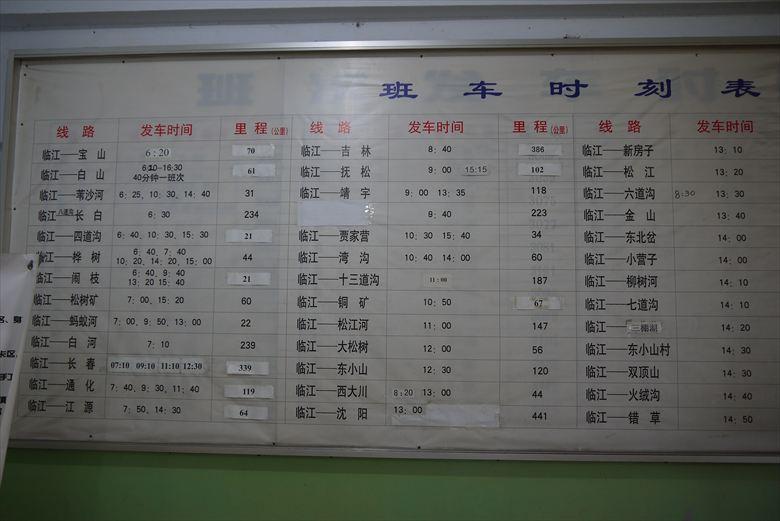 班车时刻表
线路 发车时间 里程(公里) 线路 发车时间 里程(公里) 线路 发车时间
临江——宝山 6:20 70 临江——吉林 8:40 386 临江——新房子 13:10
临江——白山 6:10-16:30 40分钟一班次 61 临江——抚松 9:00 15:15 102 临江——松江 13:20
临江——苇沙河 6:25、10:30、14:40 31 临江——靖宇 9:00 13:35 118 临江——六道沟 8:30 13:30
临江——八道沟 长白 6:30 234 9:40 223 临江——金山 13:40
临江——四道沟 6:40、10:30、15:30 21 临江——贾家营 10:30 15:40 34 临江——东北岔 14:00
临江——桦树 6:40、7:40 10:20、14:20、15:00 44 临江——湾沟 10:40 14:00 60 临江——小营子 14:00
临江——闹枝 6:40、9:40 13:20 15:40 21 临江——十三道沟 11:00 187 临江——柳树河 14:10
临江——松树矿 7:00、15:20 60 临江——铜矿 10:50 67 临江——七道沟 14:10
临江——蚂蚁河 7:00、9:50、13:00 22 临江——松江河 11:00 147 临江——三棚湖 14:20
临江——白河 7:10 239 临江——大松树 12:00 56 临江——东小山村 14:30
临江——长春 07:10 09:10 11:10 12:30 339 临江——东小山 12:30 120 临江——双顶山 14:30
临江——通化 7:40、9:30、11:40 119 临江——西大川 8:20 13:00 44 临江——火绒沟 14:40
临江——江源 7:50、14:30 64 临江——沈阳 13:00 441 临江——错草 14:50